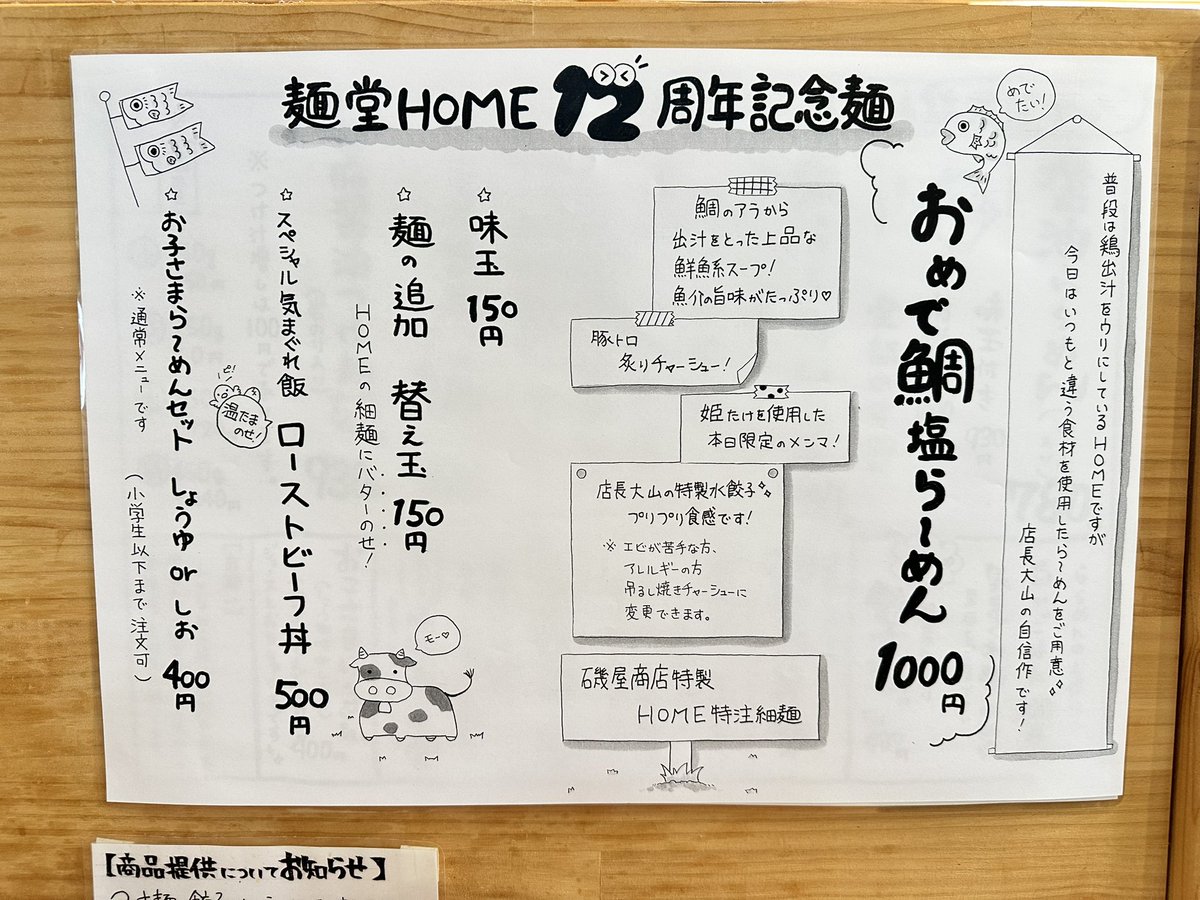 麺堂HOME 12周年記念麺
めで
たい!
普段は鶏出汁をウリにしているHOMEですが
今日はいつもと違う食材を使用したらーめんをご用意
店長大山の自信作です!
おめで鯛塩らーめん 1000円
鯛のアラから
出汁をとった上品な
鮮魚系スープ!
魚介の旨味がたっぷり♡
豚トロ
炙りチャーシュー!
姫たけを使用した
本日限定のメンマ!
店長大山の特製水餃子
プリプリ食感です!
※エビが苦手な方、
アレルギーの方
吊るし焼きチャーシューに
変更できます。
磯屋商店特製
HOME特注細麺
☆味玉 150円
☆麺の追加 替え玉 150円
HOMEの細麺にバターのせ!
モー♡
☆スペシャル気まぐれ飯 ローストビーフ丼 500円
ピ!
温たま
のせ!
☆お子さまらーめんセット しょうゆ or しお 400円
※通常メニューです (小学生以下まで注文可)
【商品提供についてお知らせ】